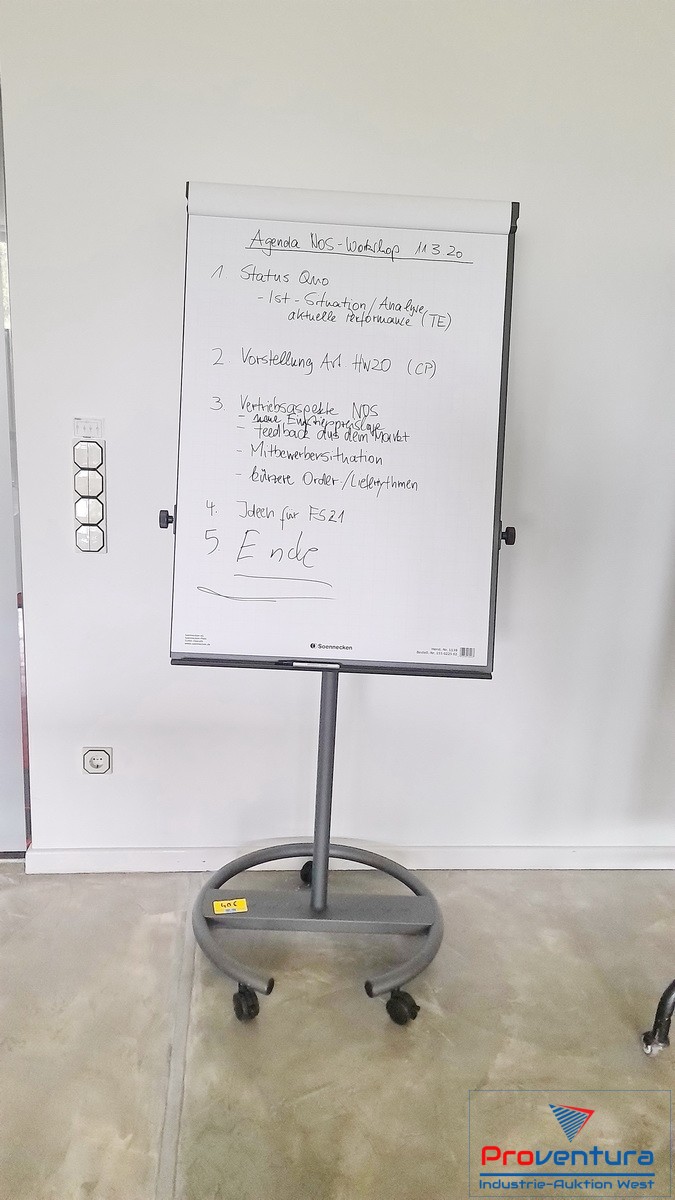 Agenda NOS-Workshop 11.3.20
1 Status Quo
- Ist-Situation/Analyse
aktuelle Performance (TE)
2 Vorstellung Art HW20 (CP)
3. Vertriebsaspekte NOS
- neue
- Feedback aus dem Markt
- Mitbewerbersituation
- kürzere Order-/Lieferrythmen
4. Ideen für FS21
5. Ende
Soennecken
40 €
Proventura
Industrie-Auktion West